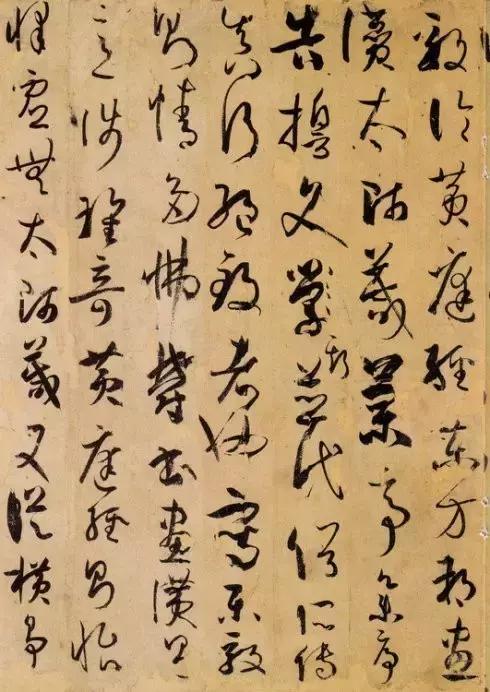 毅論黃庭經東方朔畫
讚太師箴蘭亭集序
告誓文斯並代俗所傳
真行絕致者也寫樂毅
則情多怫鬱書畫讚則
意涉瓌奇黃庭經則怡
懌虛無太師箴又從橫爭